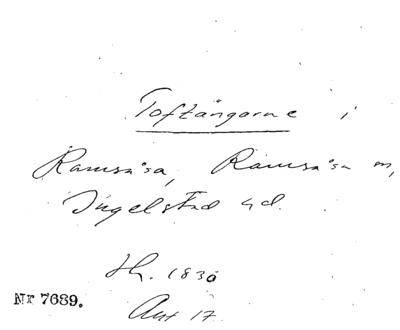 Toftängarne i
Ramsåsa, Ramsåsa sn,
Ingelstad hd.
Hl. 1830
Nr 7689.
Akt 17